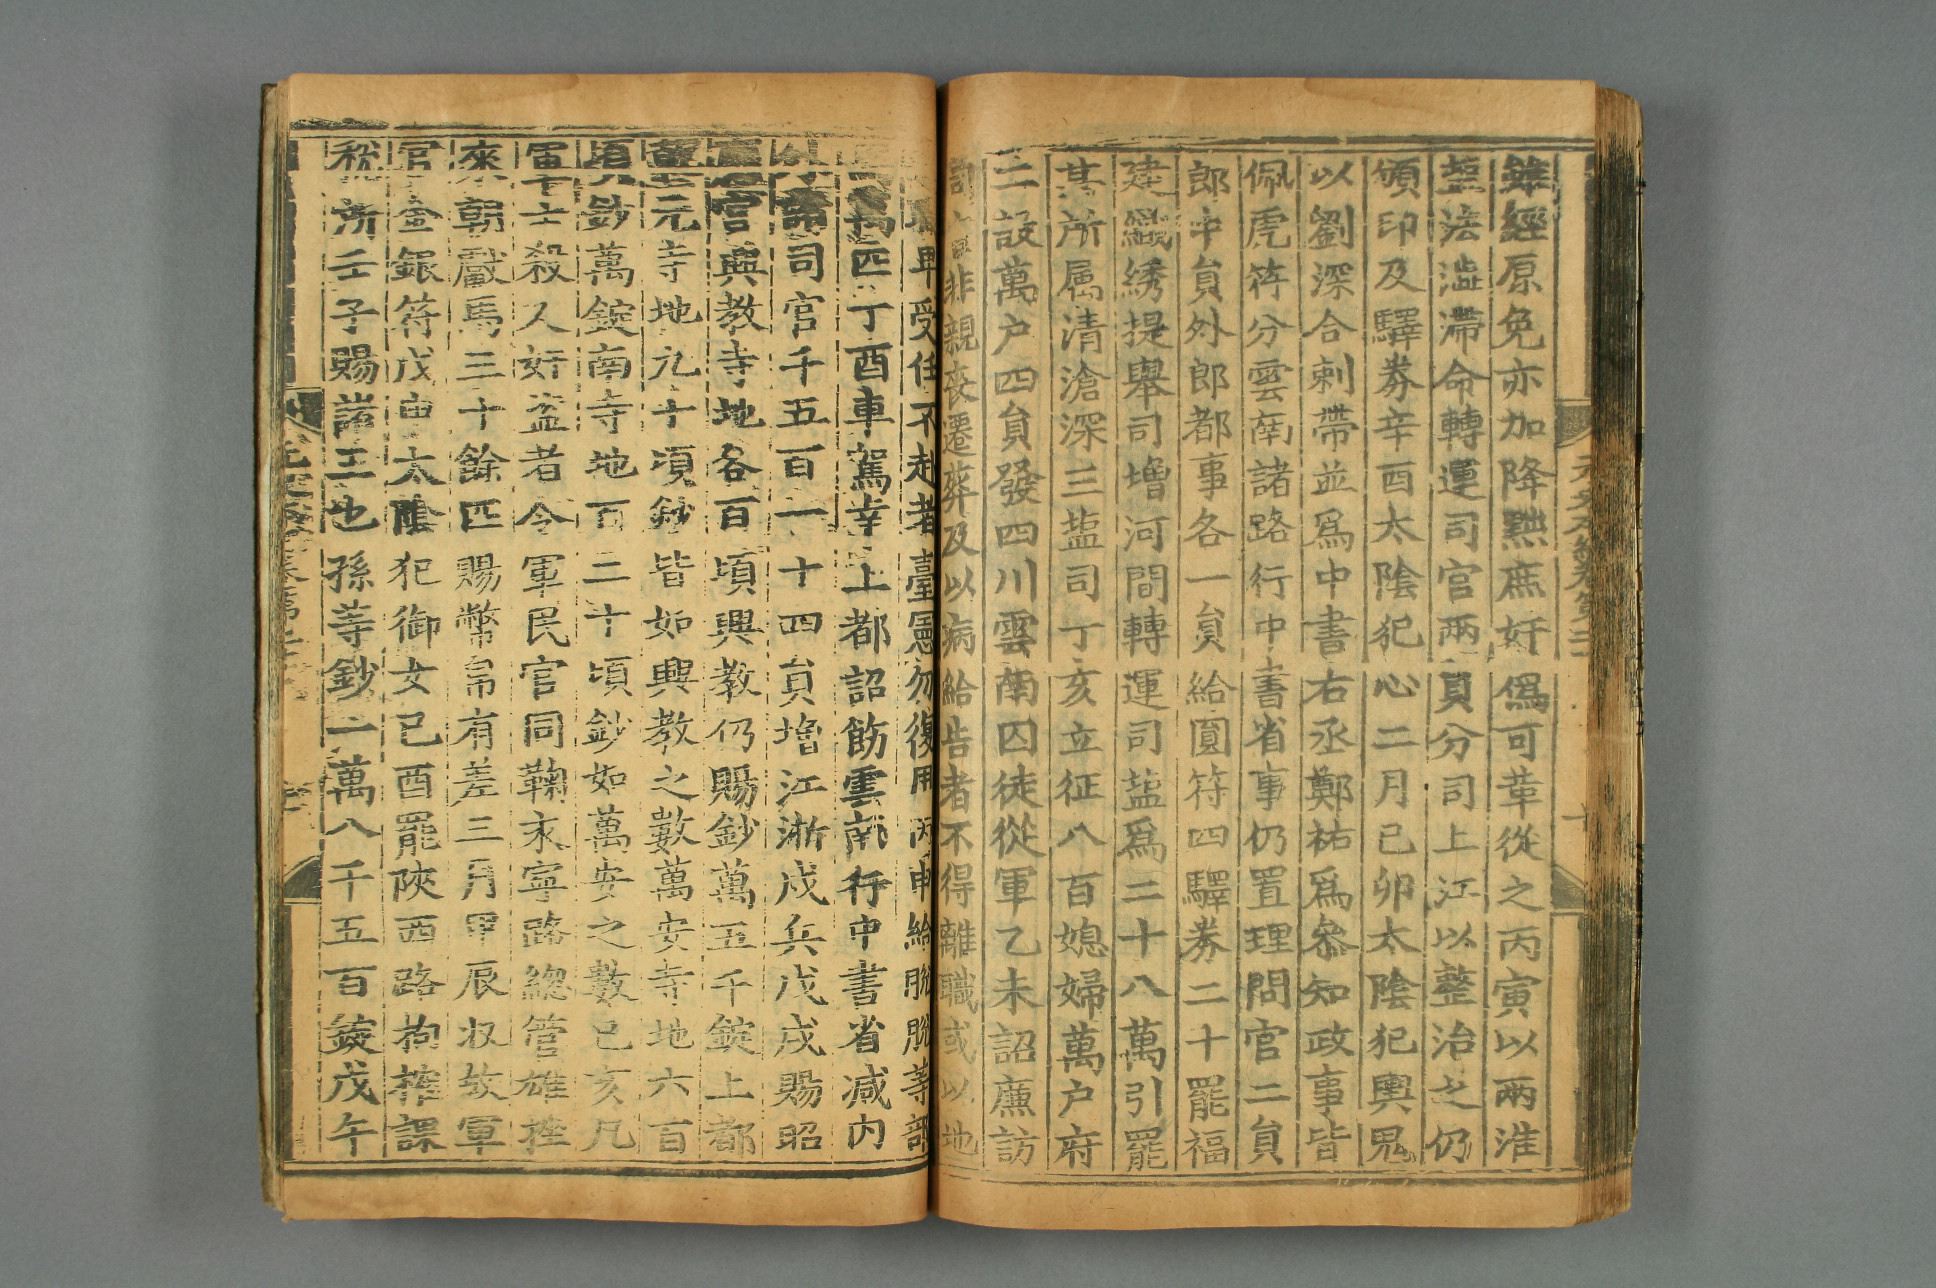 雖經原免亦加降黜庶奸僞可革從之丙寅以兩淮
鹽法澁滯命轉運司官兩員分司上江以整治之仍
頒印及驛券辛酉太陰犯心二月己卯太陰犯輿鬼
以劉深合剌帶並爲中書右丞鄭祐爲叅知政事皆
佩虎符分雲南諸路行中書省事仍置理問官二員
郎中員外郎都事各一員給圓符四驛券二十罷福
建織綉提舉司增河間轉運司鹽爲二十八萬引罷
其所属清滄深三鹽司丁亥立征八百媳婦萬户府
二設萬户四員發四川雲南囚徒從軍乙未詔廉訪
司 非親喪遷葬及以病給告者不得離職或以地
卑受任不赴者臺憲勿復用丙申給脫脫等部
萬匹丁酉車駕幸上都詔飭雲南行中書省减内
諸司官千五百一十四員增江淅戍兵戊戌賜昭
官興教寺地各百頃興教仍賜鈔萬五千錠上都
元寺地九十頃鈔皆如興教之數萬安寺地六百
頃鈔萬錠南寺地百二十頃鈔如萬安之數己亥凡
軍士殺人奸盗者令軍民官同鞫永寧路緫管雄挫
來朝獻馬三十餘匹賜幣帛有差三月甲辰収故軍
官金銀符戊申太陰犯御女己酉罷陜西路拘榷課
稅所壬子賜諸王也孫等鈔一萬八千五百錠戊午